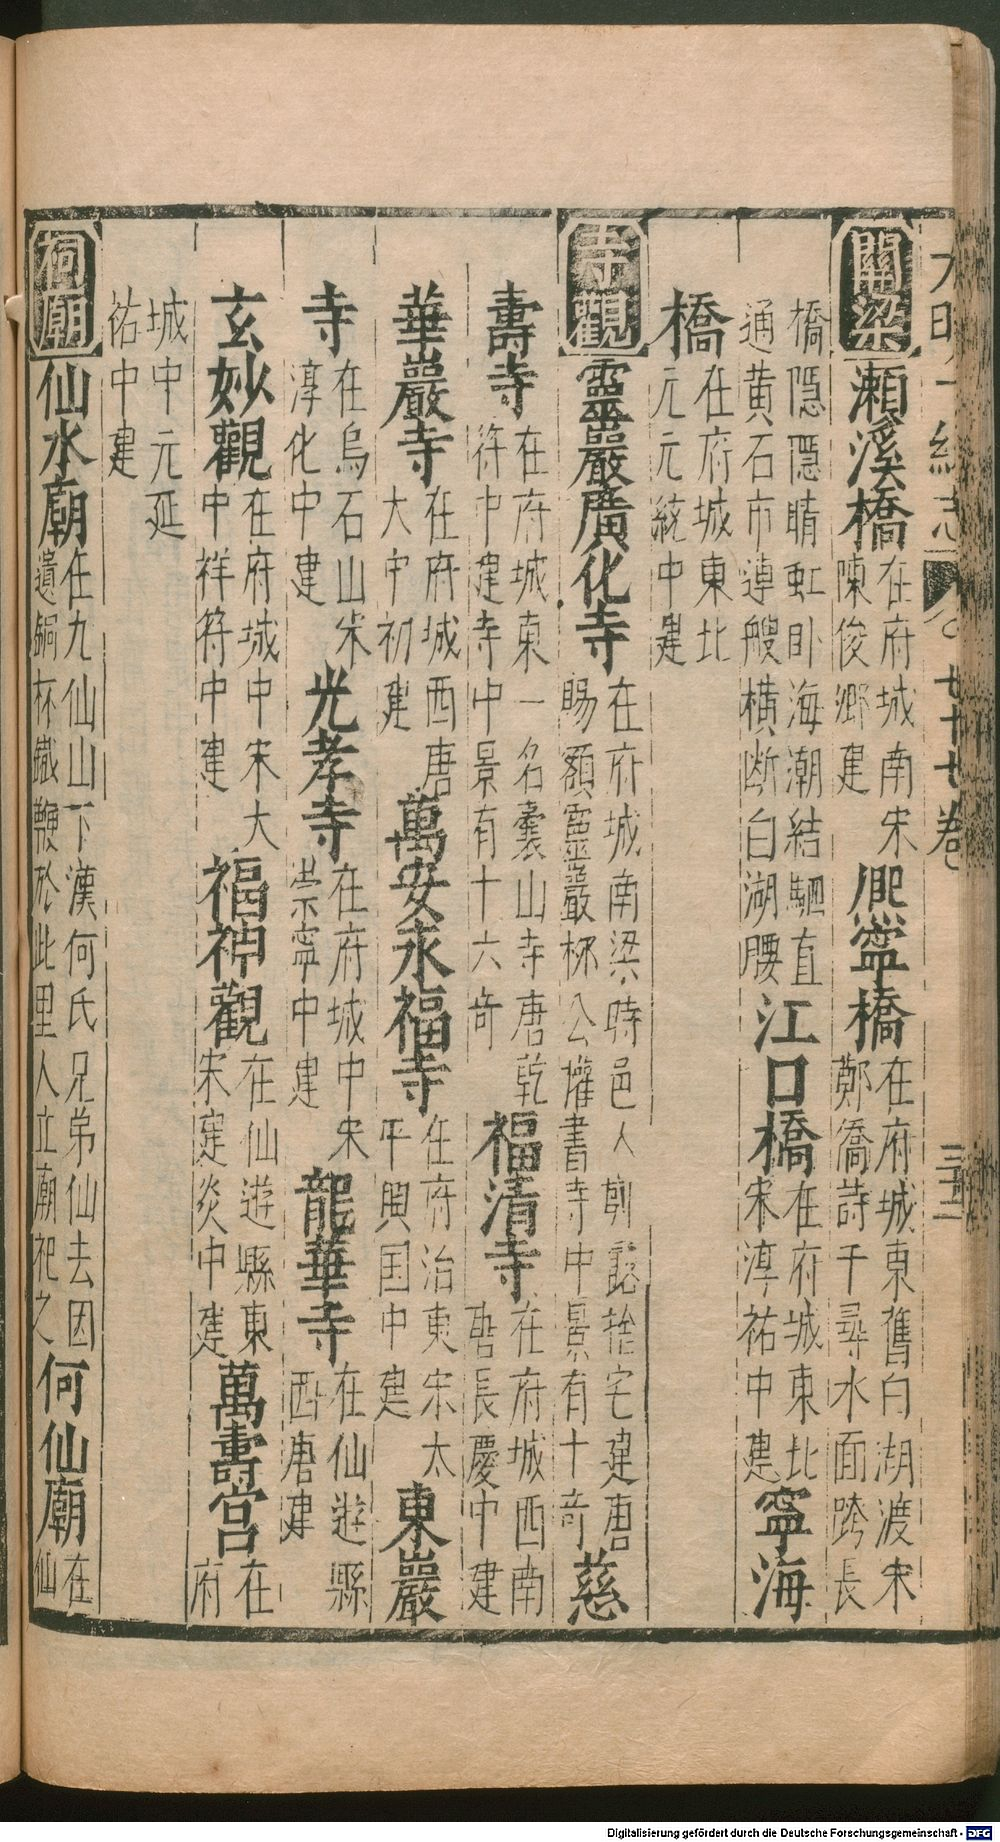 大明一統志 七十七卷 三十二
關梁 瀨溪橋 在府城南宋陳俊鄉建 熈寧橋 在府城東舊白湖渡宋鄭僑詩千尋水面跨長
橋隱隱晴虹卧海潮結駟直通黃石市連艘橫斷白湖腰 江口橋 在府城東北宋淳祐中建 寧海
橋 在府城東北元元統中建
寺觀 靈巖廣化寺 在府城南梁時邑人鄭露捨宅建唐賜額靈巖柳公權書寺中景有十奇 慈
壽寺 在府城東一名囊山寺唐乾符中建寺中景有十六奇 福清寺 在府城西南唐長慶中建
華巖寺 在府城西唐大中初建 萬安永福寺 在府治東宋太平興国中建 東巖
寺 在烏石山宋淳化中建 光孝寺 在府城中宋崇寧中建 龍華寺 在仙遊縣西唐建
玄妙觀 在府城中宋大中祥符中建 福神觀 在仙遊縣東宋建炎中建 萬壽宫 在府
城中元延祐中建
祠廟 仙水廟 在九仙山下漢何氏兄弟仙去因遺銅杯鐵鞭於此里人立廟祀之 何仙廟 在仙
Digitalisierung gefördert durch die Deutsche Forschungsgemeinschaft - DFG